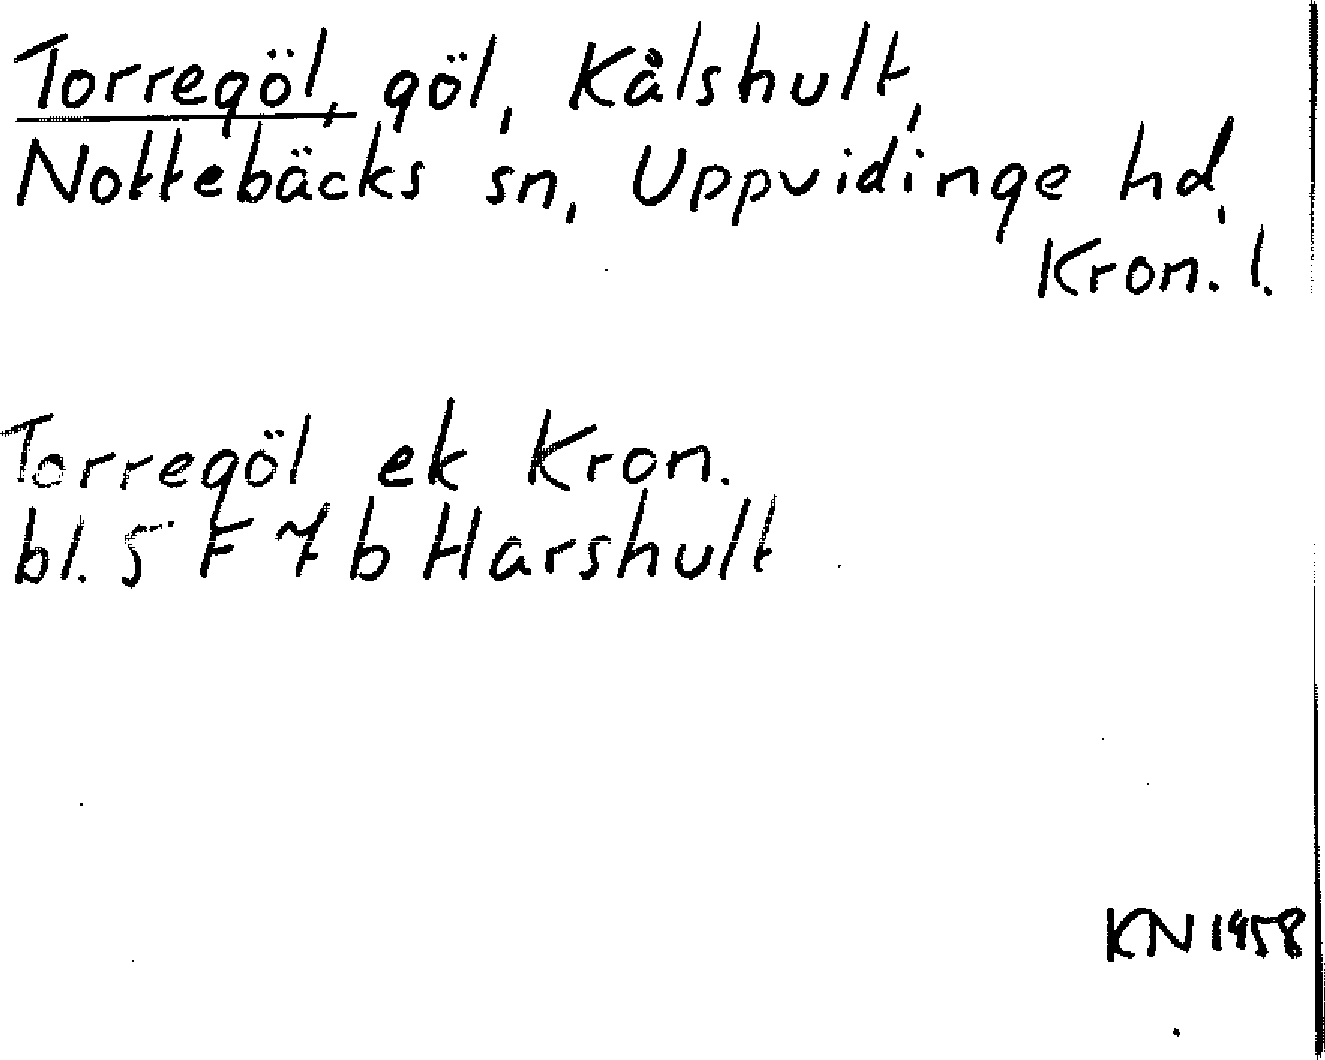 Torregöl, göl, Kålshult,
Nottebäcks sn, Uppvidinge hd,
Kron. l.
Torregöl ek Kron.
bl. 5 F 7 b Harshult
KN 1958